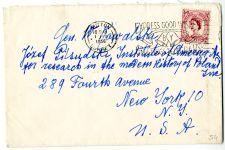 EXPRESS GOOD
Gen. W. Kowalska
Józef Pilsudski Institute of America
for research in the modern history of Poland
Inc
289 Fourth Avenue
New York 10
N. Y.
U. S. A.
54